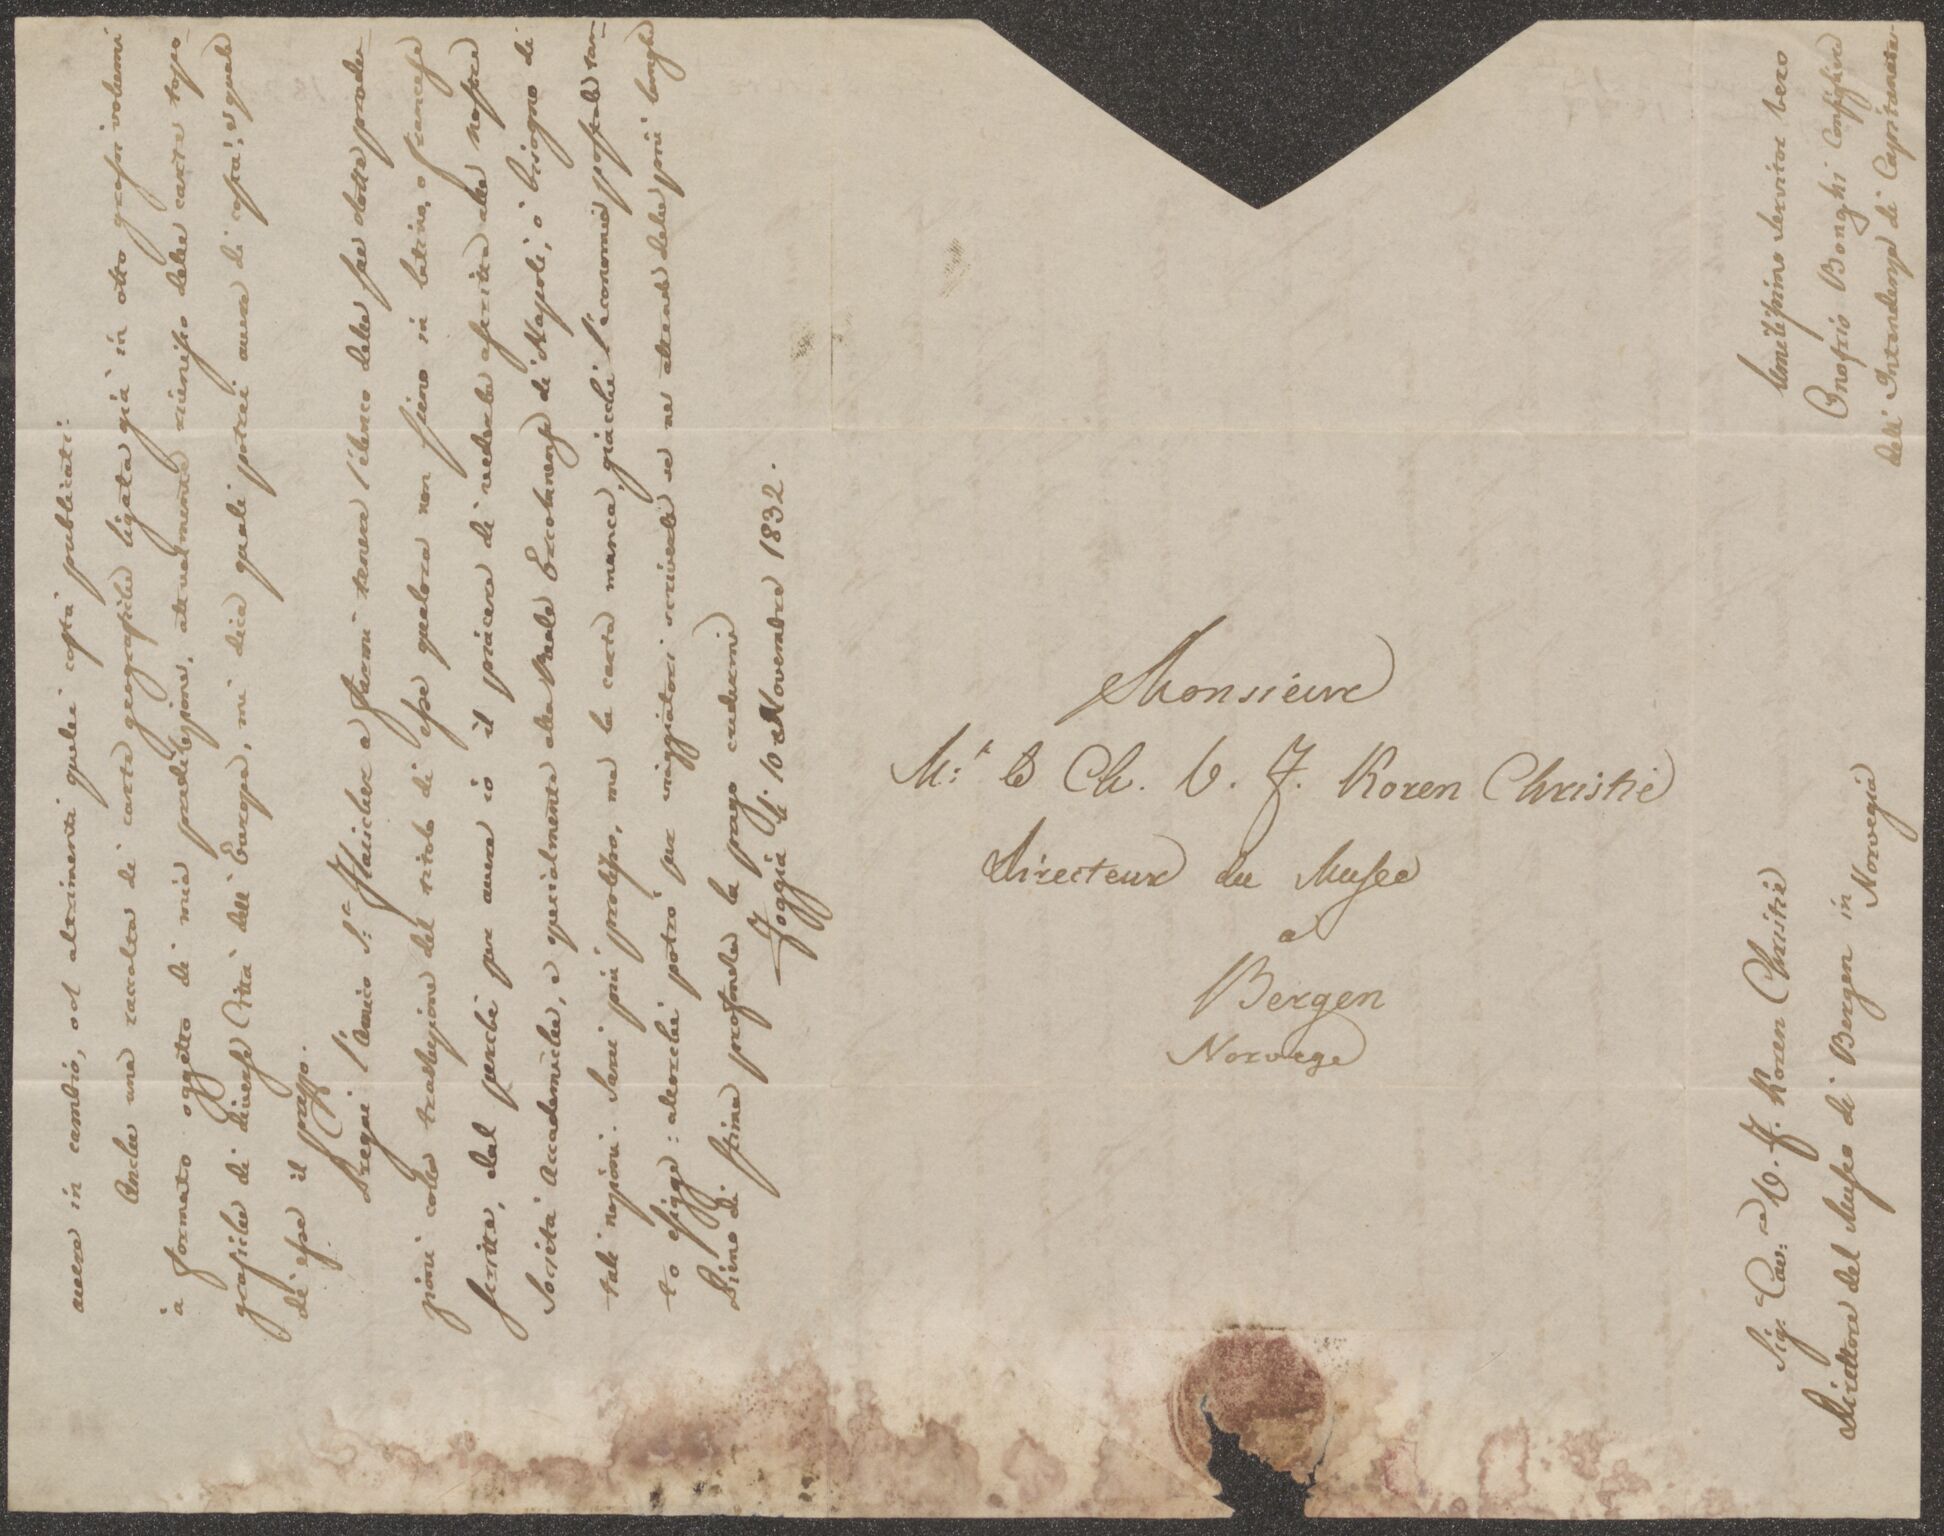 avere in cambio, od altrimenti quelli costà publicati.
Anche una raccolta di carte geografiche ligata già in otto grossi volumi
à formato oggetto di mia predilezione, attualmente riunisco delle carte topo-
grafiche di diverse Città dell'Europa, mi dica quali potrei avere di costà, e quale
di esse il prezzo.
Pregai l'amico S.r Flaischer a farmi tenere l'elenco delle sue dotte produ-
zioni colla traduzione del titolo di esse qualora non sieno in latino, o francese
scritte, dal perché per avere io il piacere di vederla ascritta alle nostre
Società Accademiche, e specialmente alla Reale Ercolanense di Napoli, ò bisogno di
tali nozioni. Sarei più prolisso, ma la carta manca, giacché l'economia postale tan-
to esigge: allorché potrò per viaggiatori scriverle se ne attenda delle più lunghe
Pieno di stima profonda la prego credermi
Foggia li 10 Novembre 1832.
Umilissimo Servitor vero
Onofrio Bonghi Consigliere
dell'Intendenza di Capitanata
Sig.r Cav.re W. F. Koren Christie
Direttore del Museo di Bergen in
Norvegia
Monsieur
M.r le Ch. W. F. Koren Christie
Directeur du Musee
a
Bergen
Norvege